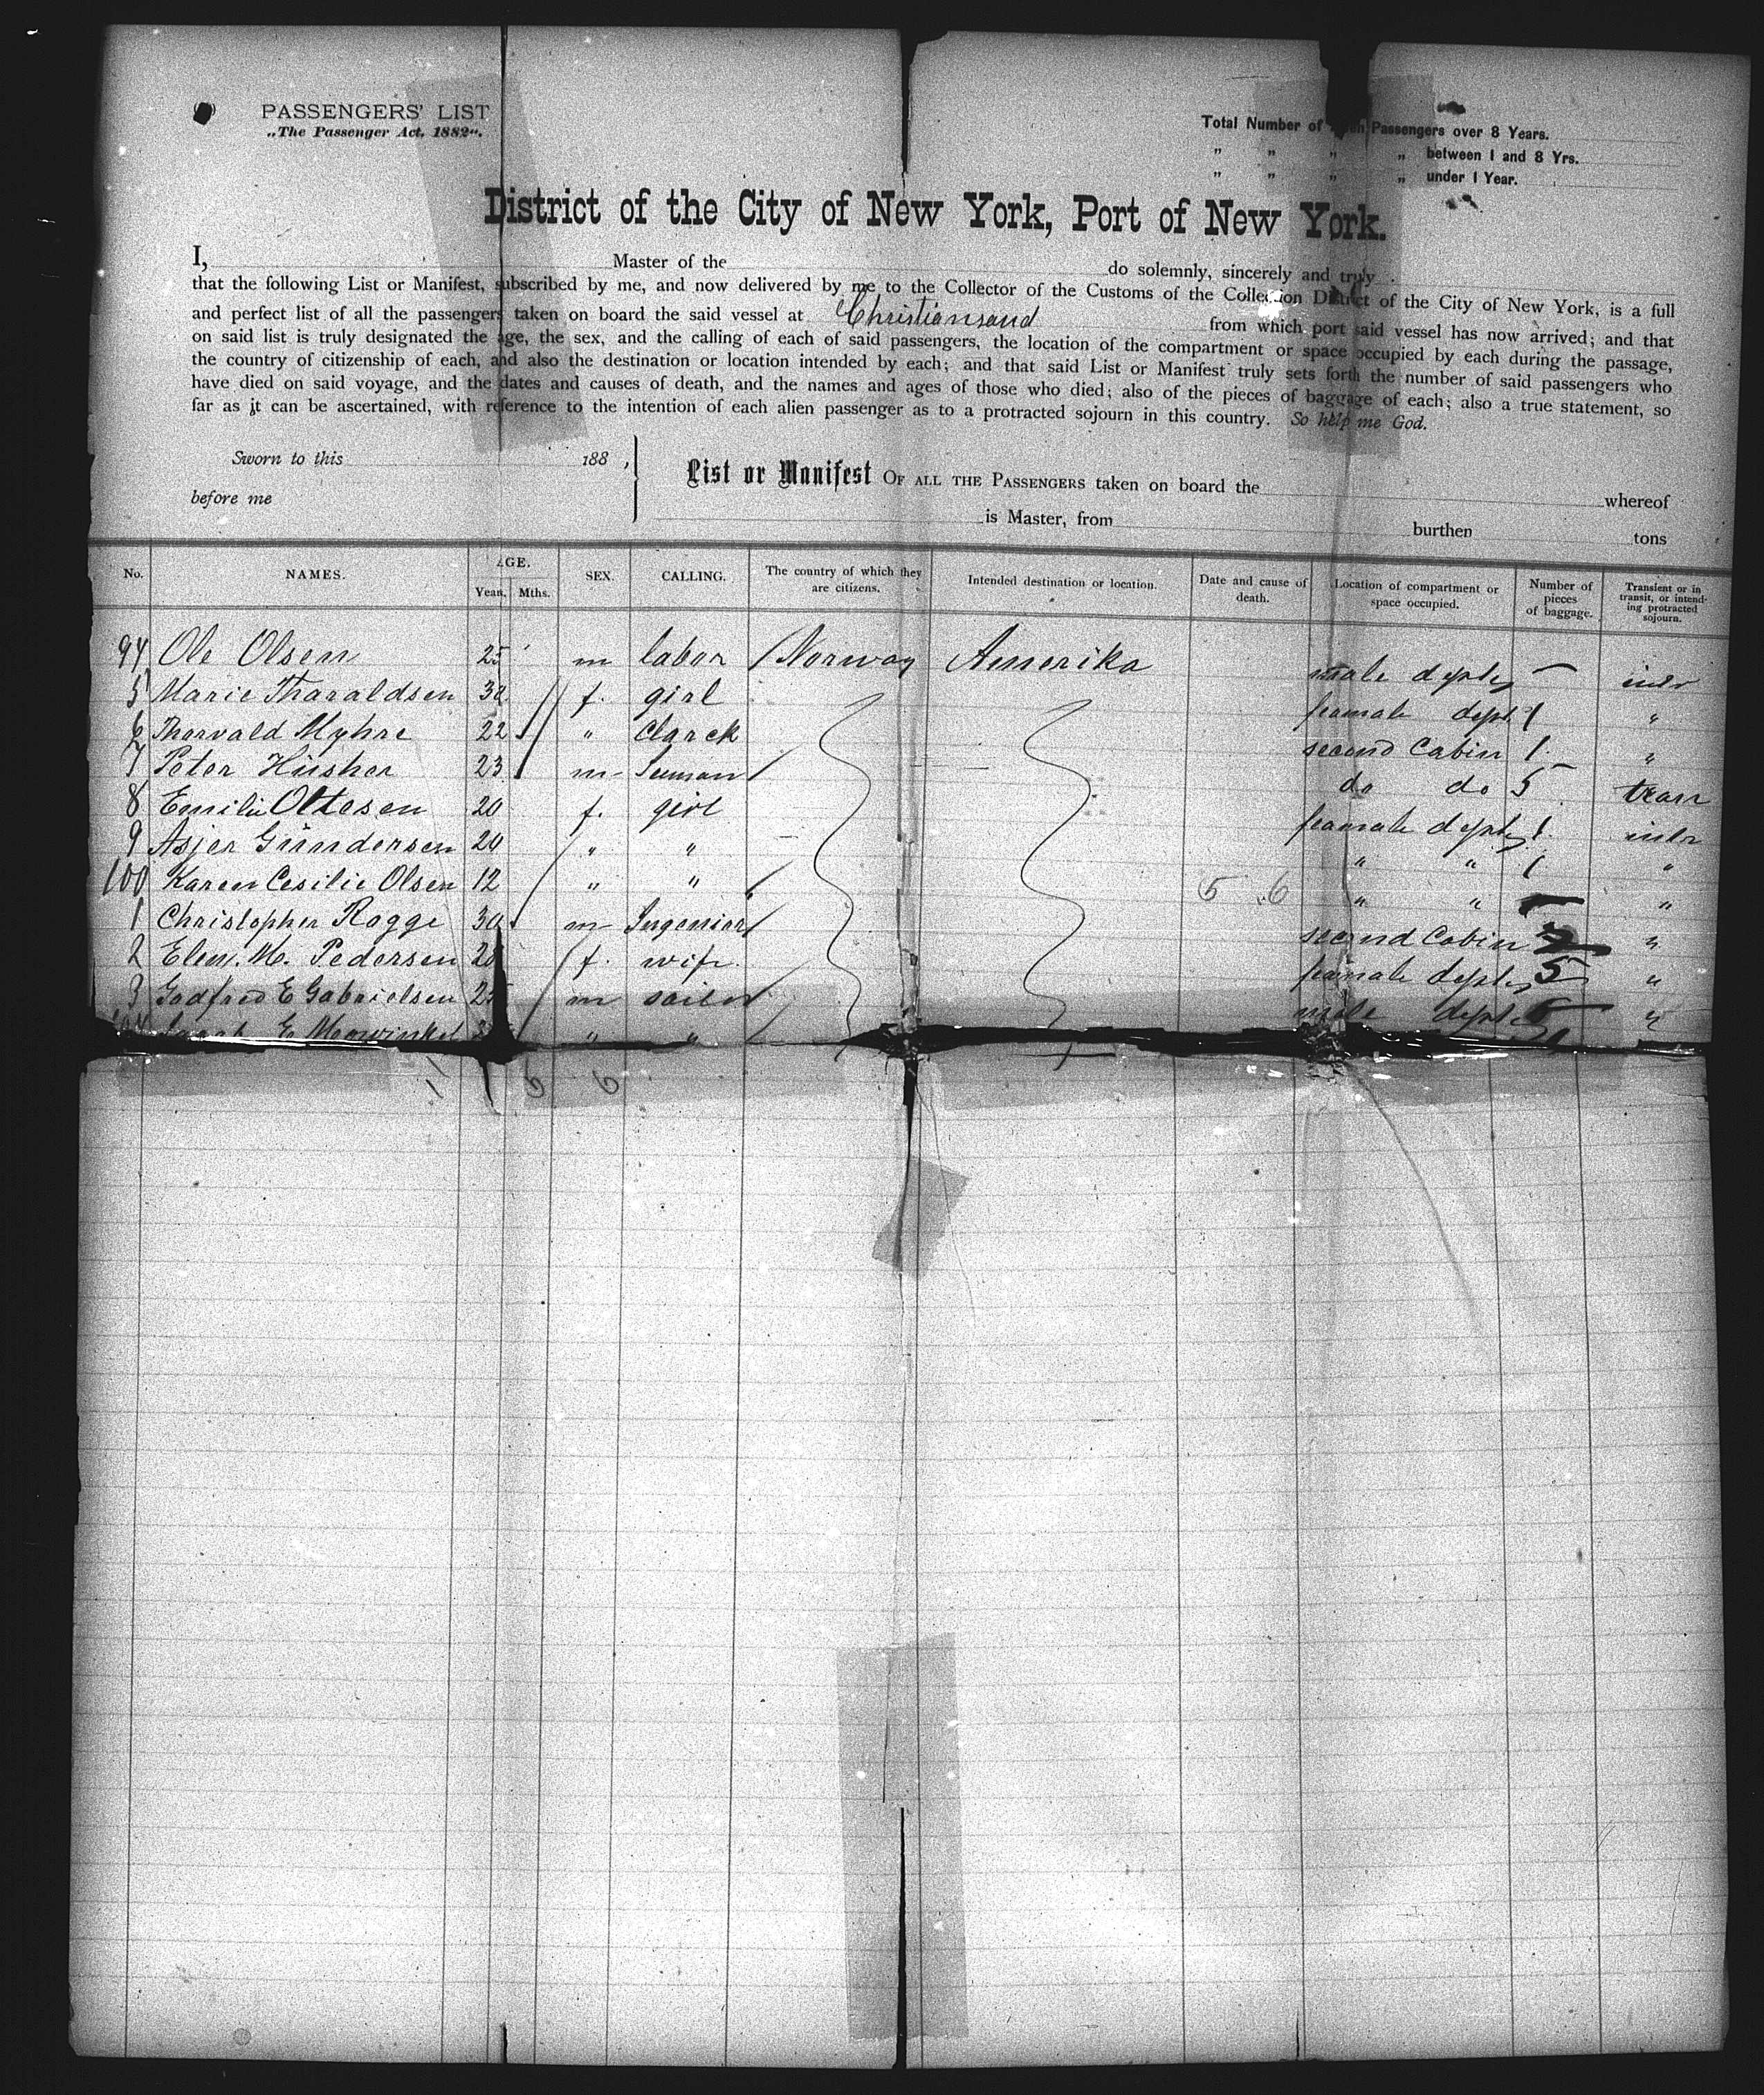 PASSENGERS' LIST
„The Passenger Act, 1882".
Total Number of such Passengers over 8 Years.
„ „ „ „ between 1 and 8 Yrs.
„ „ „ „ under 1 Year.
District of the City of New York, Port of New York.
I, Master of the do solemnly, sincerely and truly
that the following List or Manifest, subscribed by me, and now delivered by me to the Collector of the Customs of the Collection District of the City of New York, is a full
and perfect list of all the passengers taken on board the said vessel at Christiansand from which port said vessel has now arrived; and that
on said list is truly designated the age, the sex, and the calling of each of said passengers, the location of the compartment or space occupied by each during the passage,
the country of citizenship of each, and also the destination or location intended by each; and that said List or Manifest truly sets forth the number of said passengers who
have died on said voyage, and the dates and causes of death, and the names and ages of those who died; also of the pieces of baggage of each; also a true statement, so
far as it can be ascertained, with reference to the intention of each alien passenger as to a protracted sojourn in this country. So help me God.
Sworn to this 188 ,
before me
List or Manifest OF ALL THE PASSENGERS taken on board the whereof
is Master, from burthen tons
No. NAMES. AGE. Year. Mths. SEX. CALLING. The country of which they are citizens. Intended destination or location. Date and cause of death. Location of compartment or space occupied. Number of pieces of baggage. Transient or in transit, or intending protracted sojourn.
94 Ole Olsen 25 m labor Norway Amerika male deptm —
5 Marie Tharaldsen 32 f. girl feamale dept 1 "
6 Thorvald Myhre 22 " Clarck second Cabin 1 "
7 Peter Hüsher 23 m Seeman do do 5 tran
8 Emilie Ottesen 20 f. girl feamale 1
9 Asjer Gündersen 20 " " " " 1 "
100 Karen Cesilie Olsen 12 " " 5 6 " " "
1 Christopher Rogge 30 m Ingeniør second Cabin "
2 Elen. M. Pedersen 28 f. wife feamale 5 "
3 Godfred E Gabrielsen 25 m sailor male "
E Mowinkel " "